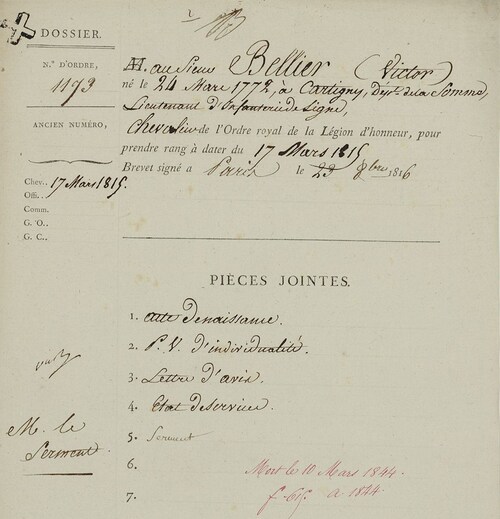 DOSSIER.
N.° D'ORDRE,
1193
ANCIEN NUMÉRO,
Chev.. 17 Mars 1815.
Offi..
Comm.
G. O..
G. C..
M. au Sieur Bellier (Victor)
né le 24 Mars 1772, à Cartigny, Dépt. de la Somme,
Lieutenant d'Infanterie de Ligne,
Chevalier de l'Ordre royal de la Légion d'honneur, pour
prendre rang à dater du 17 Mars 1815
Brevet signé à Paris le 23 8bre 1816
PIÈCES JOINTES.
1. Acte de naissance.
2. P. V. d'individualité.
3. Lettre d'avis.
4. Etat de services.
5. Serment
6.
7.
M. le
Serment.
Mort le 10 Mars 1844.
f. 615. a 1844.